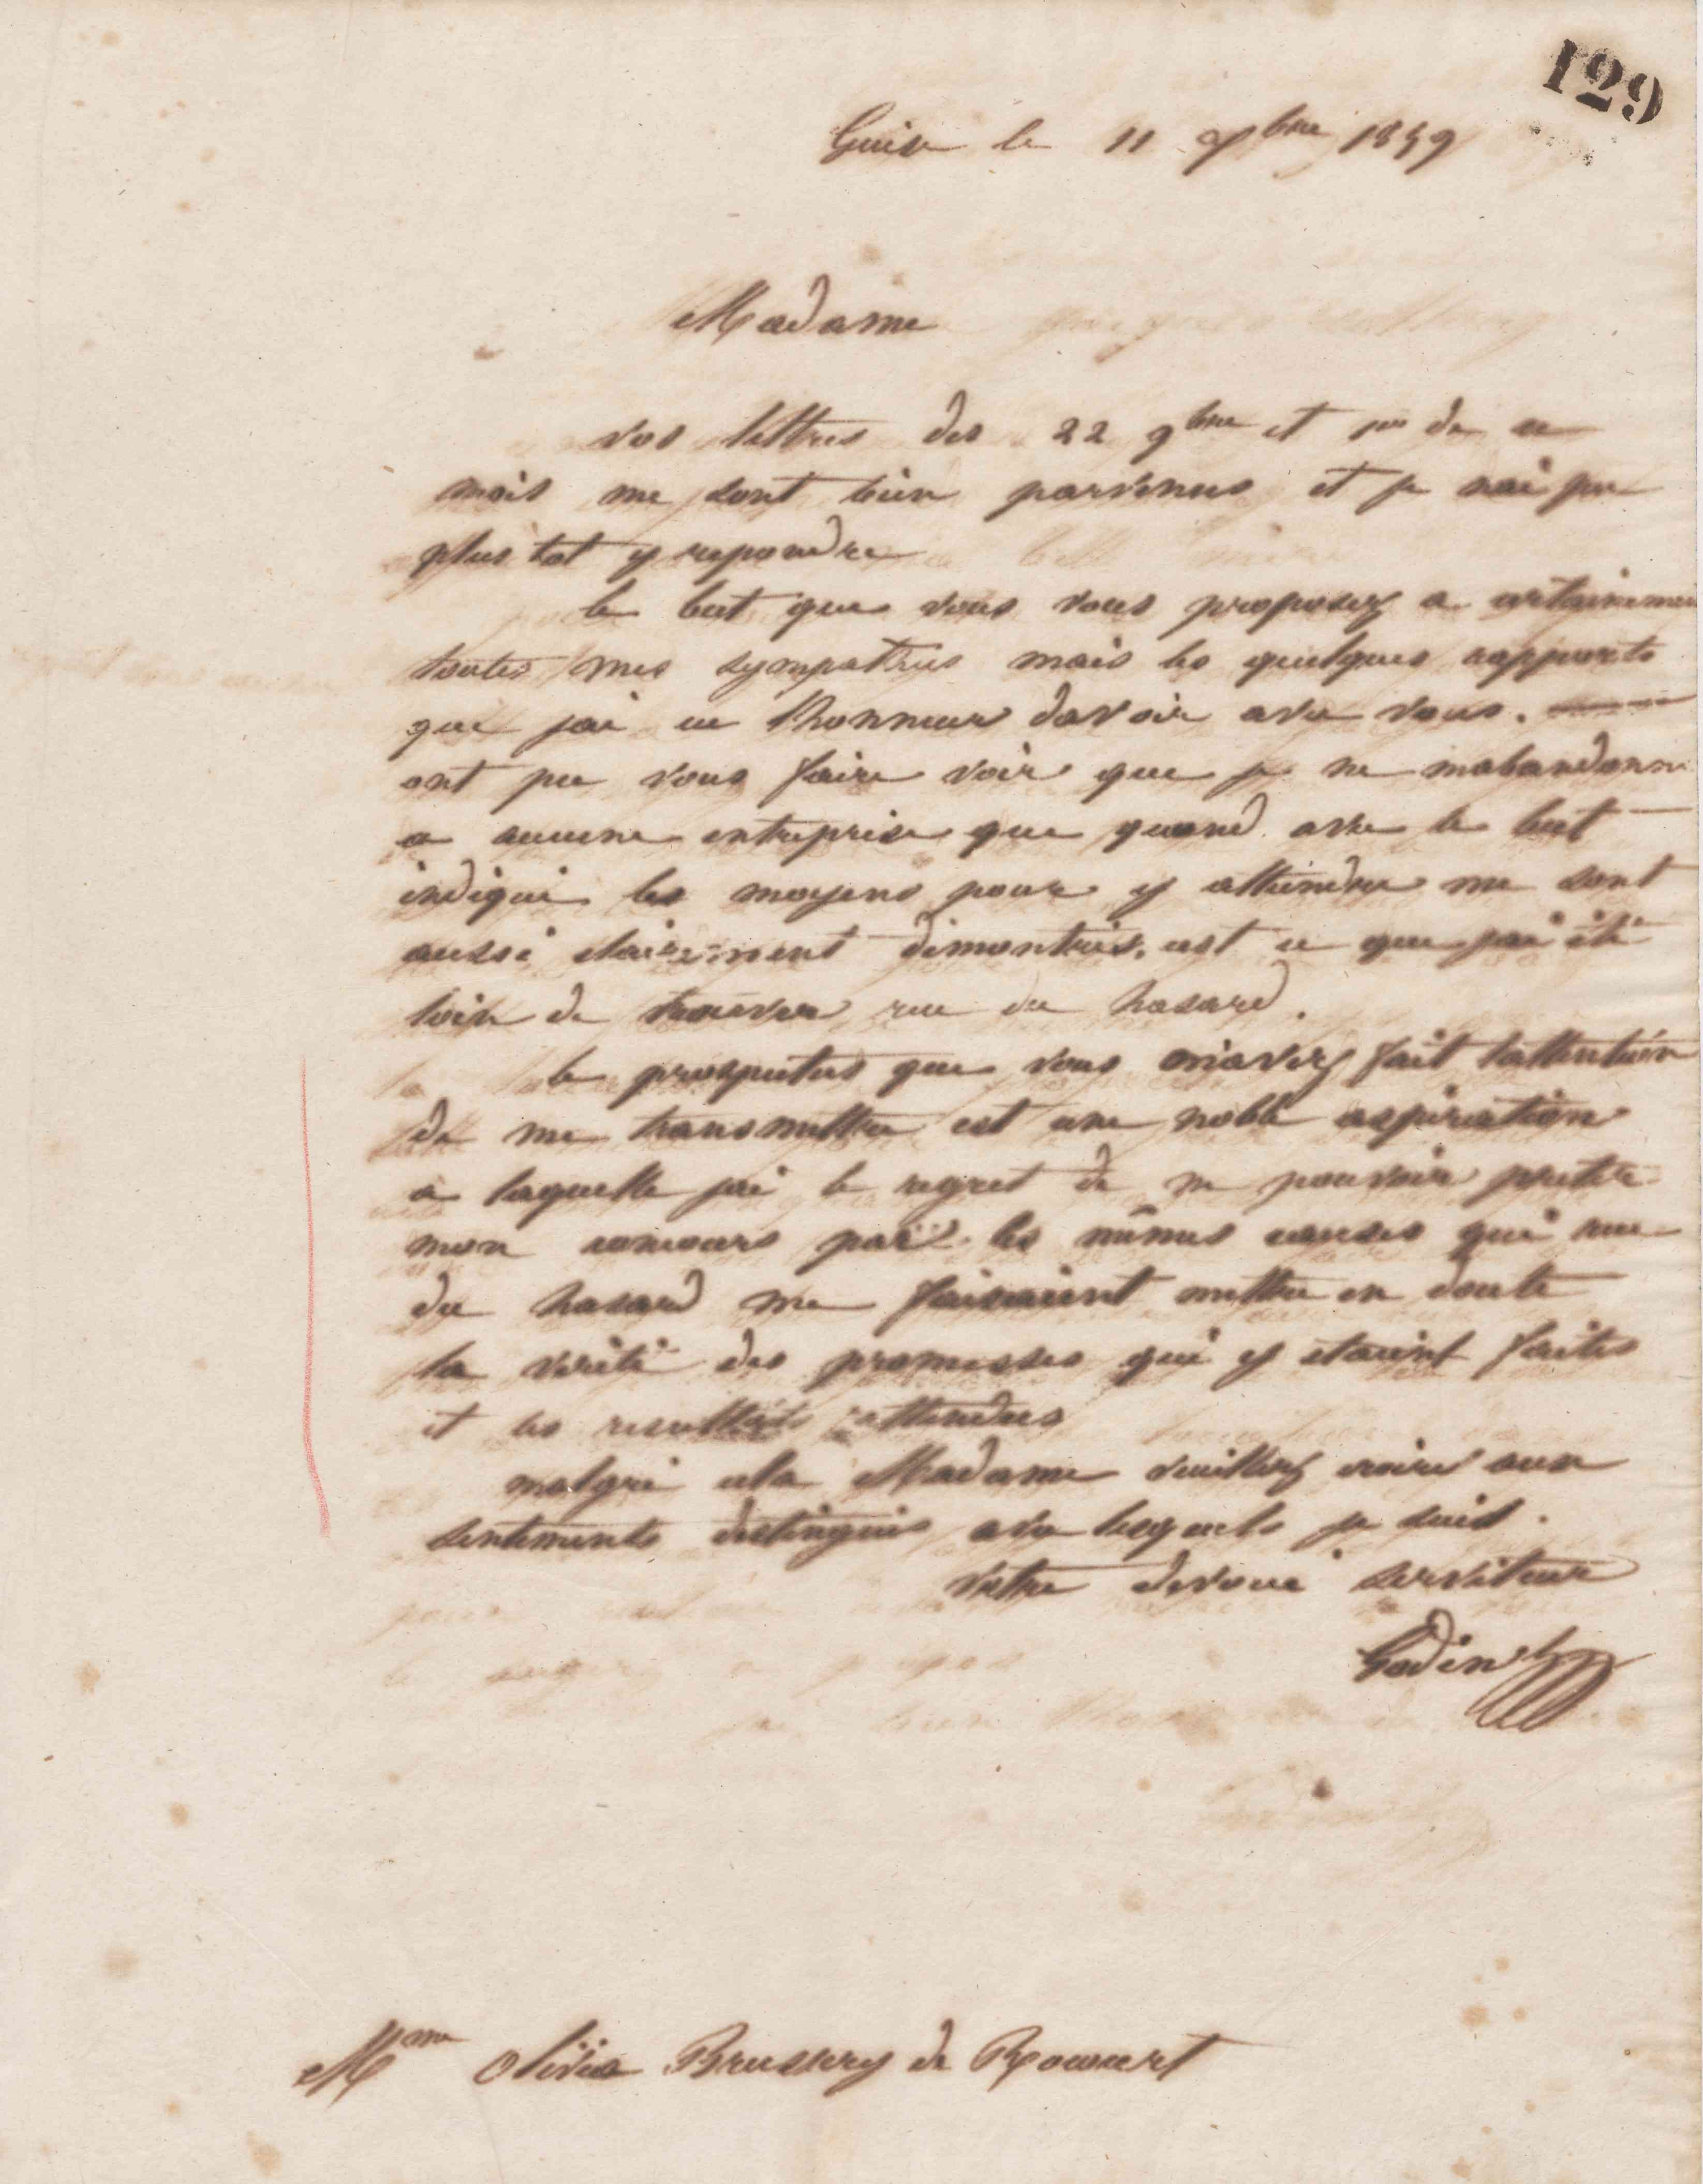 129
Guise le 11 9bre 1859
Madame
vos lettres des 22 9bre et 1er de ce
mois me sont bien parvenus et je nai pu
plus tot y repondre
le but que vous vous proposez a certainement
toutes mes sympathies mais les quelques rapports
que jai eu lhonneur davoir avec vous.
ont pu vous faire voir que je ne mabandonne
a aucune entreprise que quand avec le but
indiqué les moyens pour y atteindre me sont
aussi clairement démontrés. cest ce que jai été
loin de trouver rue du hasard.
le prospectus que vous mavez fait lattention
de me transmettre est une noble aspiration
a laquelle jai le regret de ne pouvoir preter
mon concours par les mêmes causes qui rue
du hasard me faisaient mettre en doute
la vérité des promesses qui y etaient faites
et les resultats attendus
malgré cela Madame veuillez croire aux
sentiments distingués avec lesquels je suis.
votre devoué serviteur
Godin
Mme Olivia Brussery de Rocourt